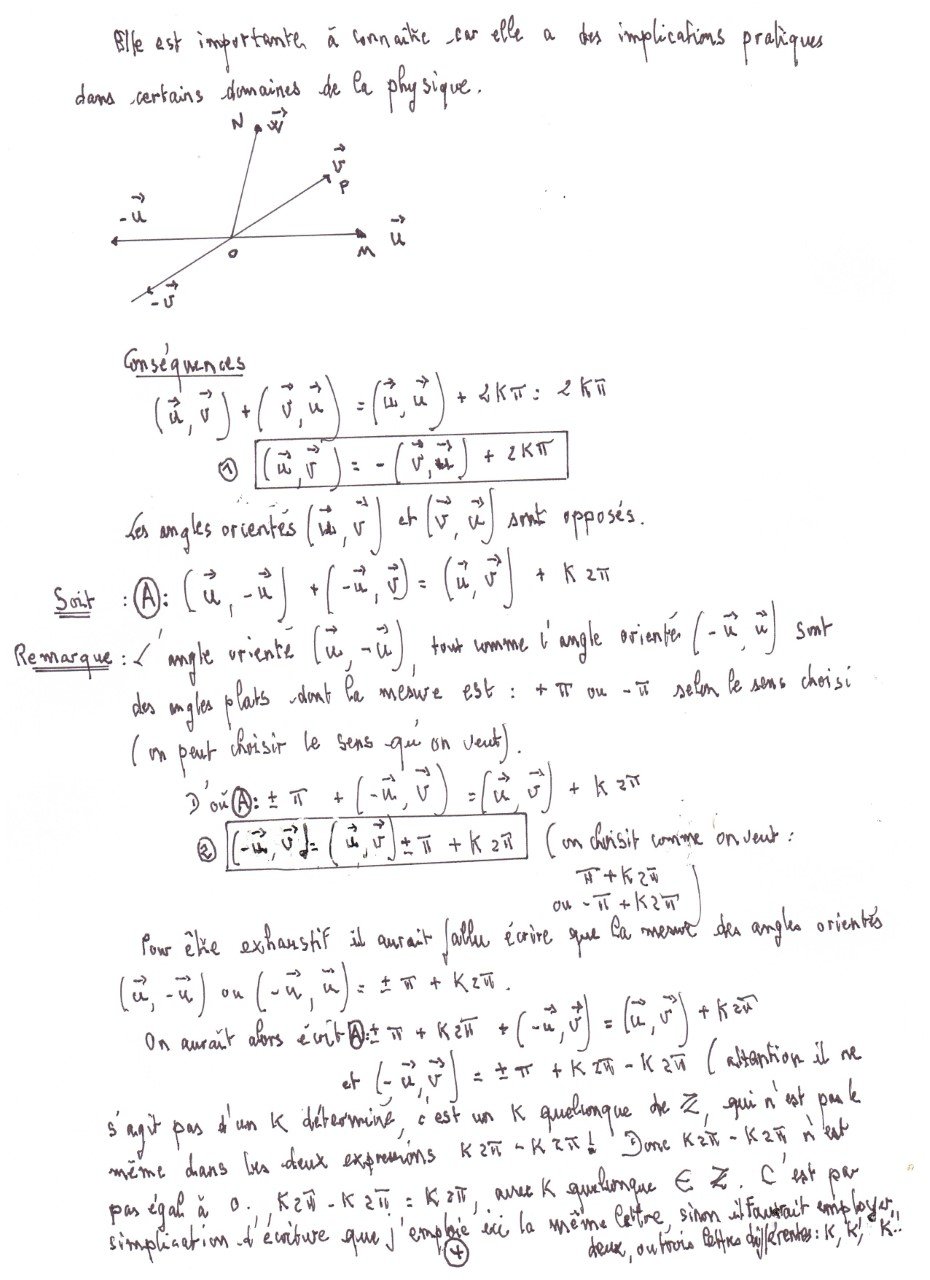 Elle est importante à connaître car elle a des implications pratiques
dans certains domaines de la physique.
N w⃗
v⃗
P
-u⃗
O
M u⃗
-v⃗
Conséquences
(u⃗, v⃗) + (v⃗, u⃗) = (u⃗, u⃗) + 2Kπ = 2Kπ
① (u⃗, v⃗) = - (v⃗, u⃗) + 2Kπ
Les angles orientés (u⃗, v⃗) et (v⃗, u⃗) sont opposés.
Soit : Ⓐ: (u⃗, -u⃗) + (-u⃗, v⃗) = (u⃗, v⃗) + K2π
Remarque : L'angle orienté (u⃗, -u⃗), tout comme l'angle orienté (-u⃗, u⃗) sont
des angles plats dont la mesure est : +π ou -π selon le sens choisi
(on peut choisir le sens qu'on veut).
D'où Ⓐ: ± π + (-u⃗, v⃗) = (u⃗, v⃗) + K2π
② (-u⃗, v⃗) = (u⃗, v⃗) ± π + K2π (on choisit comme on veut :
π + K2π
ou -π + K2π)
Pour être exhaustif il aurait fallu écrire que la mesure des angles orientés
(u⃗, -u⃗) ou (-u⃗, u⃗) = ± π + K2π.
On aurait alors écrit Ⓐ: ± π + K2π + (-u⃗, v⃗) = (u⃗, v⃗) + K2π
et (-u⃗, v⃗) = ± π + K2π - K2π (attention il ne
s'agit pas d'un K déterminé, c'est un K quelconque de ℤ, qui n'est pas le
même dans les deux expressions K2π - K2π ! Donc K2π - K2π n'est
pas égal à 0. K2π - K2π = K2π, avec K quelconque ∈ ℤ. C'est par
simplication d'écriture que j'emploie ici la même lettre, sinon il faudrait employer
deux, ou trois lettres différentes : K, K', K''..
④